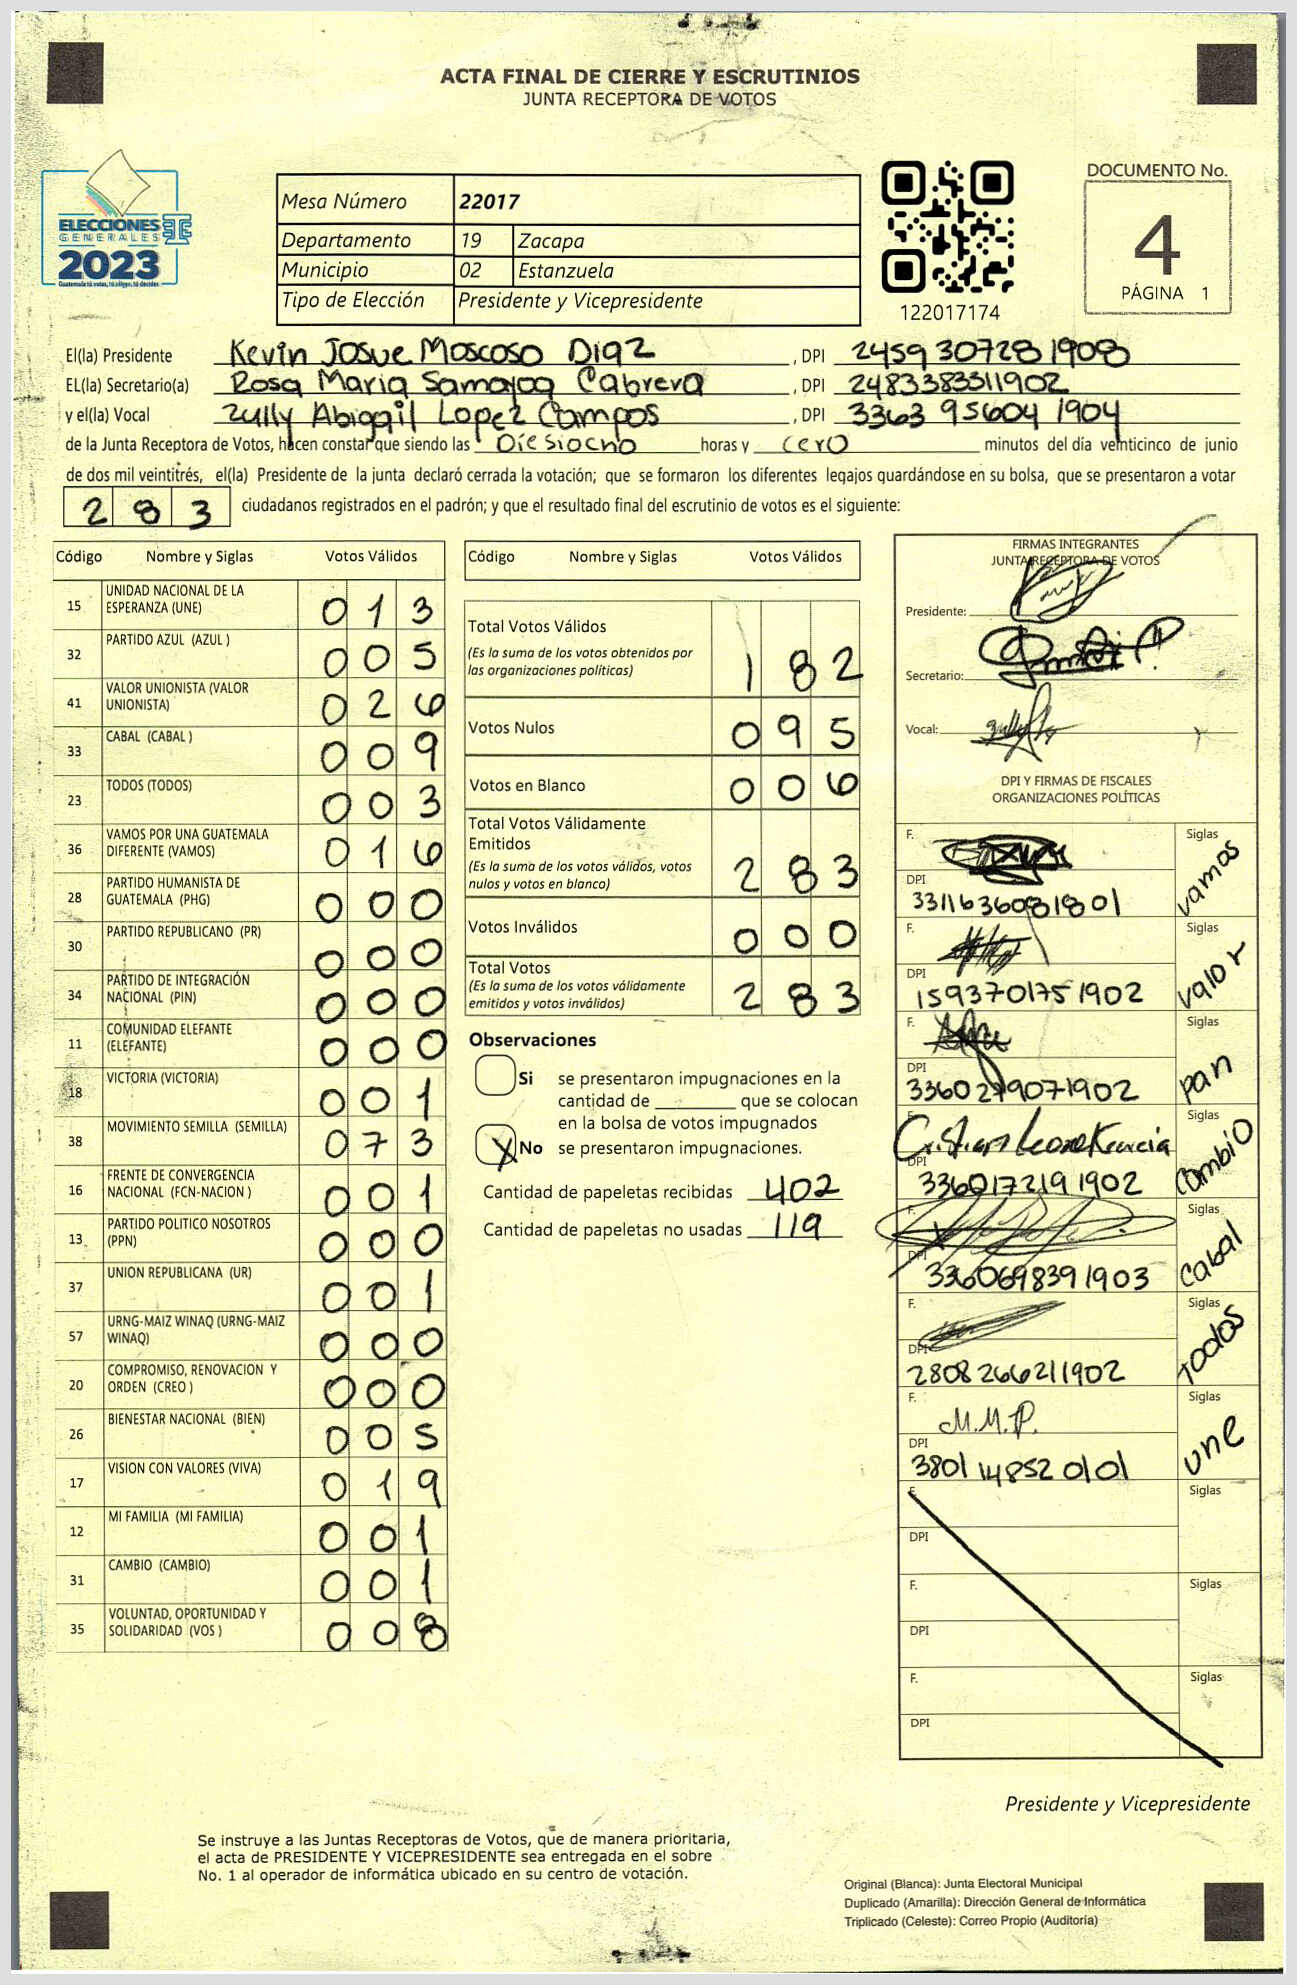 ACTA FINAL DE CIERRE Y ESCRUTINIOS
JUNTA RECEPTORA DE VOTOS
ELECCIONES
GENERALES
2023
Guatemala tú votas, tú eliges, tú decides
Mesa Número 22017
Departamento 19 Zacapa
Municipio 02 Estanzuela
Tipo de Elección Presidente y Vicepresidente
122017174
DOCUMENTO No.
4
PÁGINA 1
El(la) Presidente Kevin Josue Moscoso Diaz , DPI 2459 30728 1908
EL(la) Secretario(a) Rosa Maria Samayoa Cabrera , DPI 2483383311902
y el(la) Vocal Zully Abigail Lopez Campos , DPI 3363 95604 1904
de la Junta Receptora de Votos, hacen constar que siendo las Diesiocho horas y cero minutos del día veinticinco de junio
de dos mil veintitrés, el(la) Presidente de la junta declaró cerrada la votación; que se formaron los diferentes legajos guardándose en su bolsa, que se presentaron a votar
283 ciudadanos registrados en el padrón; y que el resultado final del escrutinio de votos es el siguiente:
Código Nombre y Siglas Votos Válidos
15 UNIDAD NACIONAL DE LA ESPERANZA (UNE) 013
32 PARTIDO AZUL (AZUL ) 005
41 VALOR UNIONISTA (VALOR UNIONISTA) 026
33 CABAL (CABAL ) 009
23 TODOS (TODOS) 003
36 VAMOS POR UNA GUATEMALA DIFERENTE (VAMOS) 016
28 PARTIDO HUMANISTA DE GUATEMALA (PHG) 000
30 PARTIDO REPUBLICANO (PR) 000
34 PARTIDO DE INTEGRACIÓN NACIONAL (PIN) 000
11 COMUNIDAD ELEFANTE (ELEFANTE) 000
18 VICTORIA (VICTORIA) 001
38 MOVIMIENTO SEMILLA (SEMILLA) 073
16 FRENTE DE CONVERGENCIA NACIONAL (FCN-NACION ) 001
13 PARTIDO POLITICO NOSOTROS (PPN) 000
37 UNION REPUBLICANA (UR) 001
57 URNG-MAIZ WINAQ (URNG-MAIZ WINAQ) 000
20 COMPROMISO, RENOVACION Y ORDEN (CREO ) 000
26 BIENESTAR NACIONAL (BIEN) 005
17 VISION CON VALORES (VIVA) 019
12 MI FAMILIA (MI FAMILIA) 001
31 CAMBIO (CAMBIO) 001
35 VOLUNTAD, OPORTUNIDAD Y SOLIDARIDAD (VOS ) 008
Código Nombre y Siglas Votos Válidos
Total Votos Válidos 182
(Es la suma de los votos obtenidos por
las organizaciones políticas)
Votos Nulos 095
Votos en Blanco 006
Total Votos Válidamente
Emitidos 283
(Es la suma de los votos válidos, votos
nulos y votos en blanco)
Votos Inválidos 000
Total Votos 283
(Es la suma de los votos válidamente
emitidos y votos inválidos)
Observaciones
Si se presentaron impugnaciones en la
cantidad de ________ que se colocan
en la bolsa de votos impugnados
X No se presentaron impugnaciones.
Cantidad de papeletas recibidas 402
Cantidad de papeletas no usadas 119
FIRMAS INTEGRANTES
JUNTA RECEPTORA DE VOTOS
Presidente:
Secretario:
Vocal:
DPI Y FIRMAS DE FISCALES
ORGANIZACIONES POLÍTICAS
F. Siglas vamos
DPI 3311636081801
F. Siglas valor
DPI 1593701751902
F. Siglas pan
DPI 3360279071902
F. Siglas Cambio
DPI 3360172191902
F. Siglas cabal
DPI 3360698391903
F. Siglas TODOS
DPI 2808266211902
F. M.M.P. Siglas une
DPI 3801148520101
F. Siglas
DPI
F. Siglas
DPI
F. Siglas
DPI
Presidente y Vicepresidente
Se instruye a las Juntas Receptoras de Votos, que de manera prioritaria,
el acta de PRESIDENTE Y VICEPRESIDENTE sea entregada en el sobre
No. 1 al operador de informática ubicado en su centro de votación.
Original (Blanca): Junta Electoral Municipal
Duplicado (Amarilla): Dirección General de Informática
Triplicado (Celeste): Correo Propio (Auditoría)